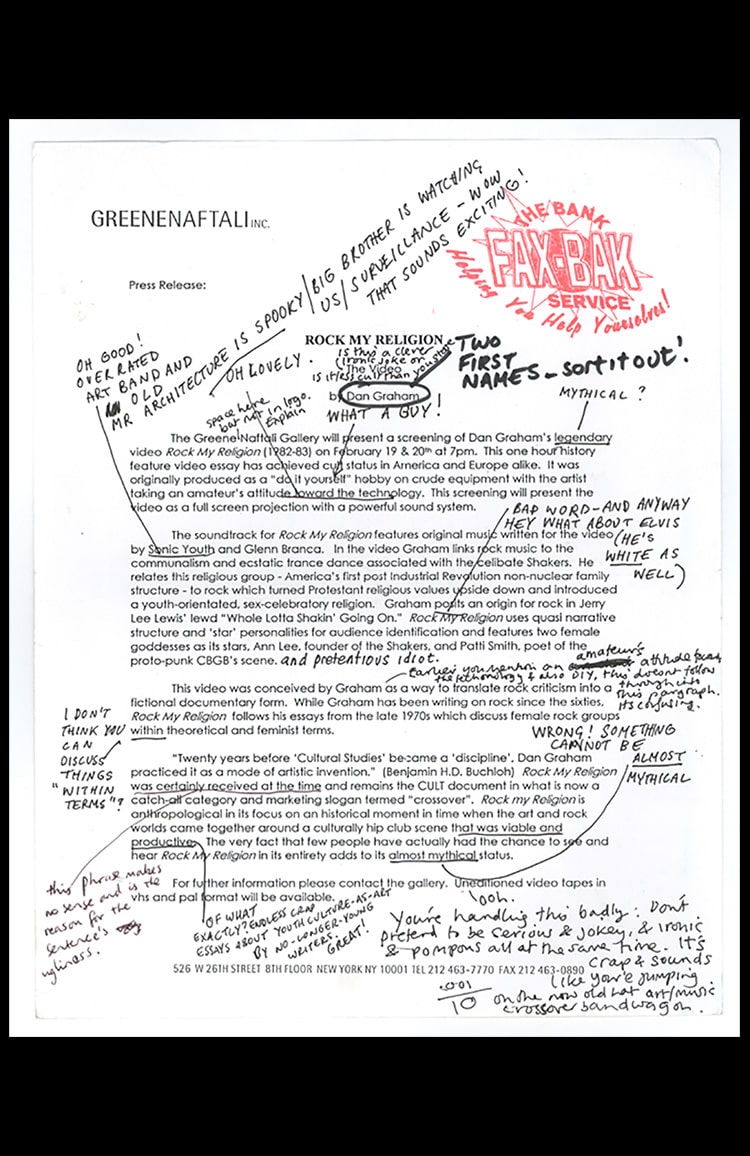 GREENENAFTALI INC.
THE BANK
FAX-BAK
SERVICE
Helping You Help Yourselves!
BIG BROTHER IS WATCHING
US/SURVEILLANCE - WOW
THAT SOUNDS EXCITING!
Press Release:
OH GOOD!
OVERRATED
ART BAND AND
OLD
MR ARCHITECTURE IS SPOOKY/
OH LOVELY.
ROCK MY RELIGION
Is this a clever
ironic joke or
is it less cult than you state
The Video
by Dan Graham
TWO
FIRST
NAMES - sort it out!
WHAT A GUY!
MYTHICAL?
space here
but not in logo.
Explain
The Greene Naftali Gallery will present a screening of Dan Graham's legendary
video Rock My Religion (1982-83) on February 19 & 20th at 7pm. This one hour history
feature video essay has achieved cult status in America and Europe alike. It was
originally produced as a "do it yourself" hobby on crude equipment with the artist
taking an amateur's attitude toward the technology. This screening will present the
video as a full screen projection with a powerful sound system.
BAD WORD - AND ANYWAY
HEY WHAT ABOUT ELVIS
(HE'S
WHITE AS
WELL)
The soundtrack for Rock My Religion features original music written for the video
by Sonic Youth and Glenn Branca. In the video Graham links rock music to the
communalism and ecstatic trance dance associated with the celibate Shakers. He
relates this religious group - America's first post Industrial Revolution non-nuclear family
structure - to rock which turned Protestant religious values upside down and introduced
a youth-orientated, sex-celebratory religion. Graham posits an origin for rock in Jerry
Lee Lewis' lewd "Whole Lotta Shakin' Going On." Rock My Religion uses quasi narrative
structure and 'star' personalities for audience identification and features two female
goddesses as its stars, Ann Lee, founder of the Shakers, and Patti Smith, poet of the
proto-punk CBGB's scene. and pretentious idiot.
Earlier you mention an amateur's attitude towards
the technology & also DIY, this doesn't follow
through into
this paragraph.
Its confusing.
This video was conceived by Graham as a way to translate rock criticism into a
fictional documentary form. While Graham has been writing on rock since the sixties,
Rock My Religion follows his essays from the late 1970s which discuss female rock groups
within theoretical and feminist terms.
I DON'T
THINK YOU
CAN
DISCUSS
THINGS
"WITHIN
TERMS"?
WRONG! SOMETHING
CANNOT BE
ALMOST
MYTHICAL
"Twenty years before 'Cultural Studies' became a 'discipline', Dan Graham
practiced it as a mode of artistic invention." (Benjamin H.D. Buchloh) Rock My Religion
was certainly received at the time and remains the CULT document in what is now a
catch-all category and marketing slogan termed "crossover". Rock my Religion is
anthropological in its focus on an historical moment in time when the art and rock
worlds came together around a culturally hip club scene that was viable and
productive. The very fact that few people have actually had the chance to see and
hear Rock My Religion in its entirety adds to its almost mythical status.
this phrase makes
no sense and is the
reason for the
sentence's
ugliness.
For further information please contact the gallery. Uneditioned video tapes in
vhs and pal format will be available.
'ooh.
OF WHAT
EXACTLY? ENDLESS CRAP
ESSAYS ABOUT YOUTH-CULTURE-AS-ART
BY NO-LONGER-YOUNG
WRITERS.
GREAT!
You're handling this badly: Don't
pretend to be serious & jokey, & ironic
& pompous all at the same time. It's
crap & sounds
like you're jumping
on the now old hat art/music
crossover bandwagon.
526 W 26TH STREET 8TH FLOOR NEW YORK NY 10001 TEL 212 463-7770 FAX 212 463-0890
.001
10